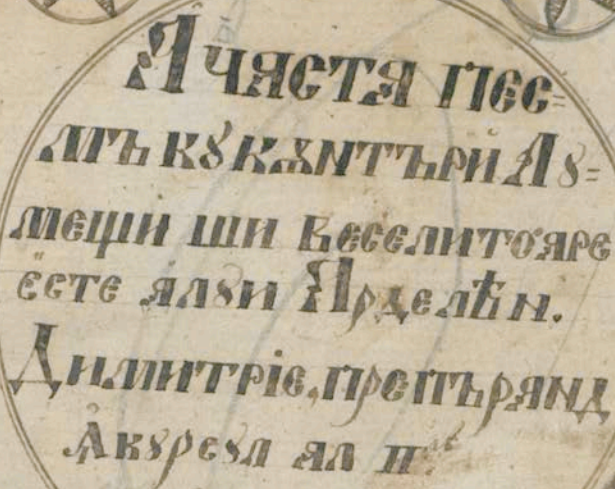 Ачаста пес=
мъ кꙋ кѫнтърй лꙋ=
мещи ши веселитоаре
есте алꙋи Арделѣн.
Димитрїе, препъранд
Акꙋреꙋл ал